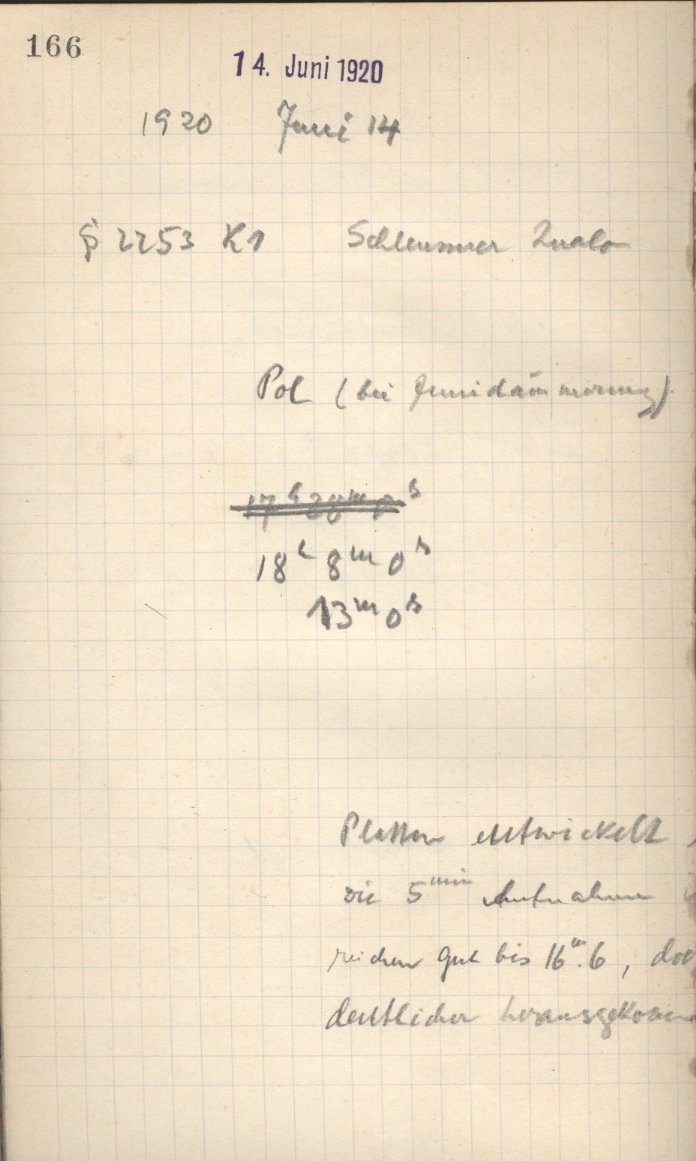 166
14. Juni 1920
1920 Juni 14
2253 K1 Schleussner
Pol (bei Junidämmerung)
17h 28m 0s
18h 8m 0s
13m 0s
Platten entwickelt
Die 5min Aufnahmen
reichen gut bis 16m.6,
deutlicher herausgekommen